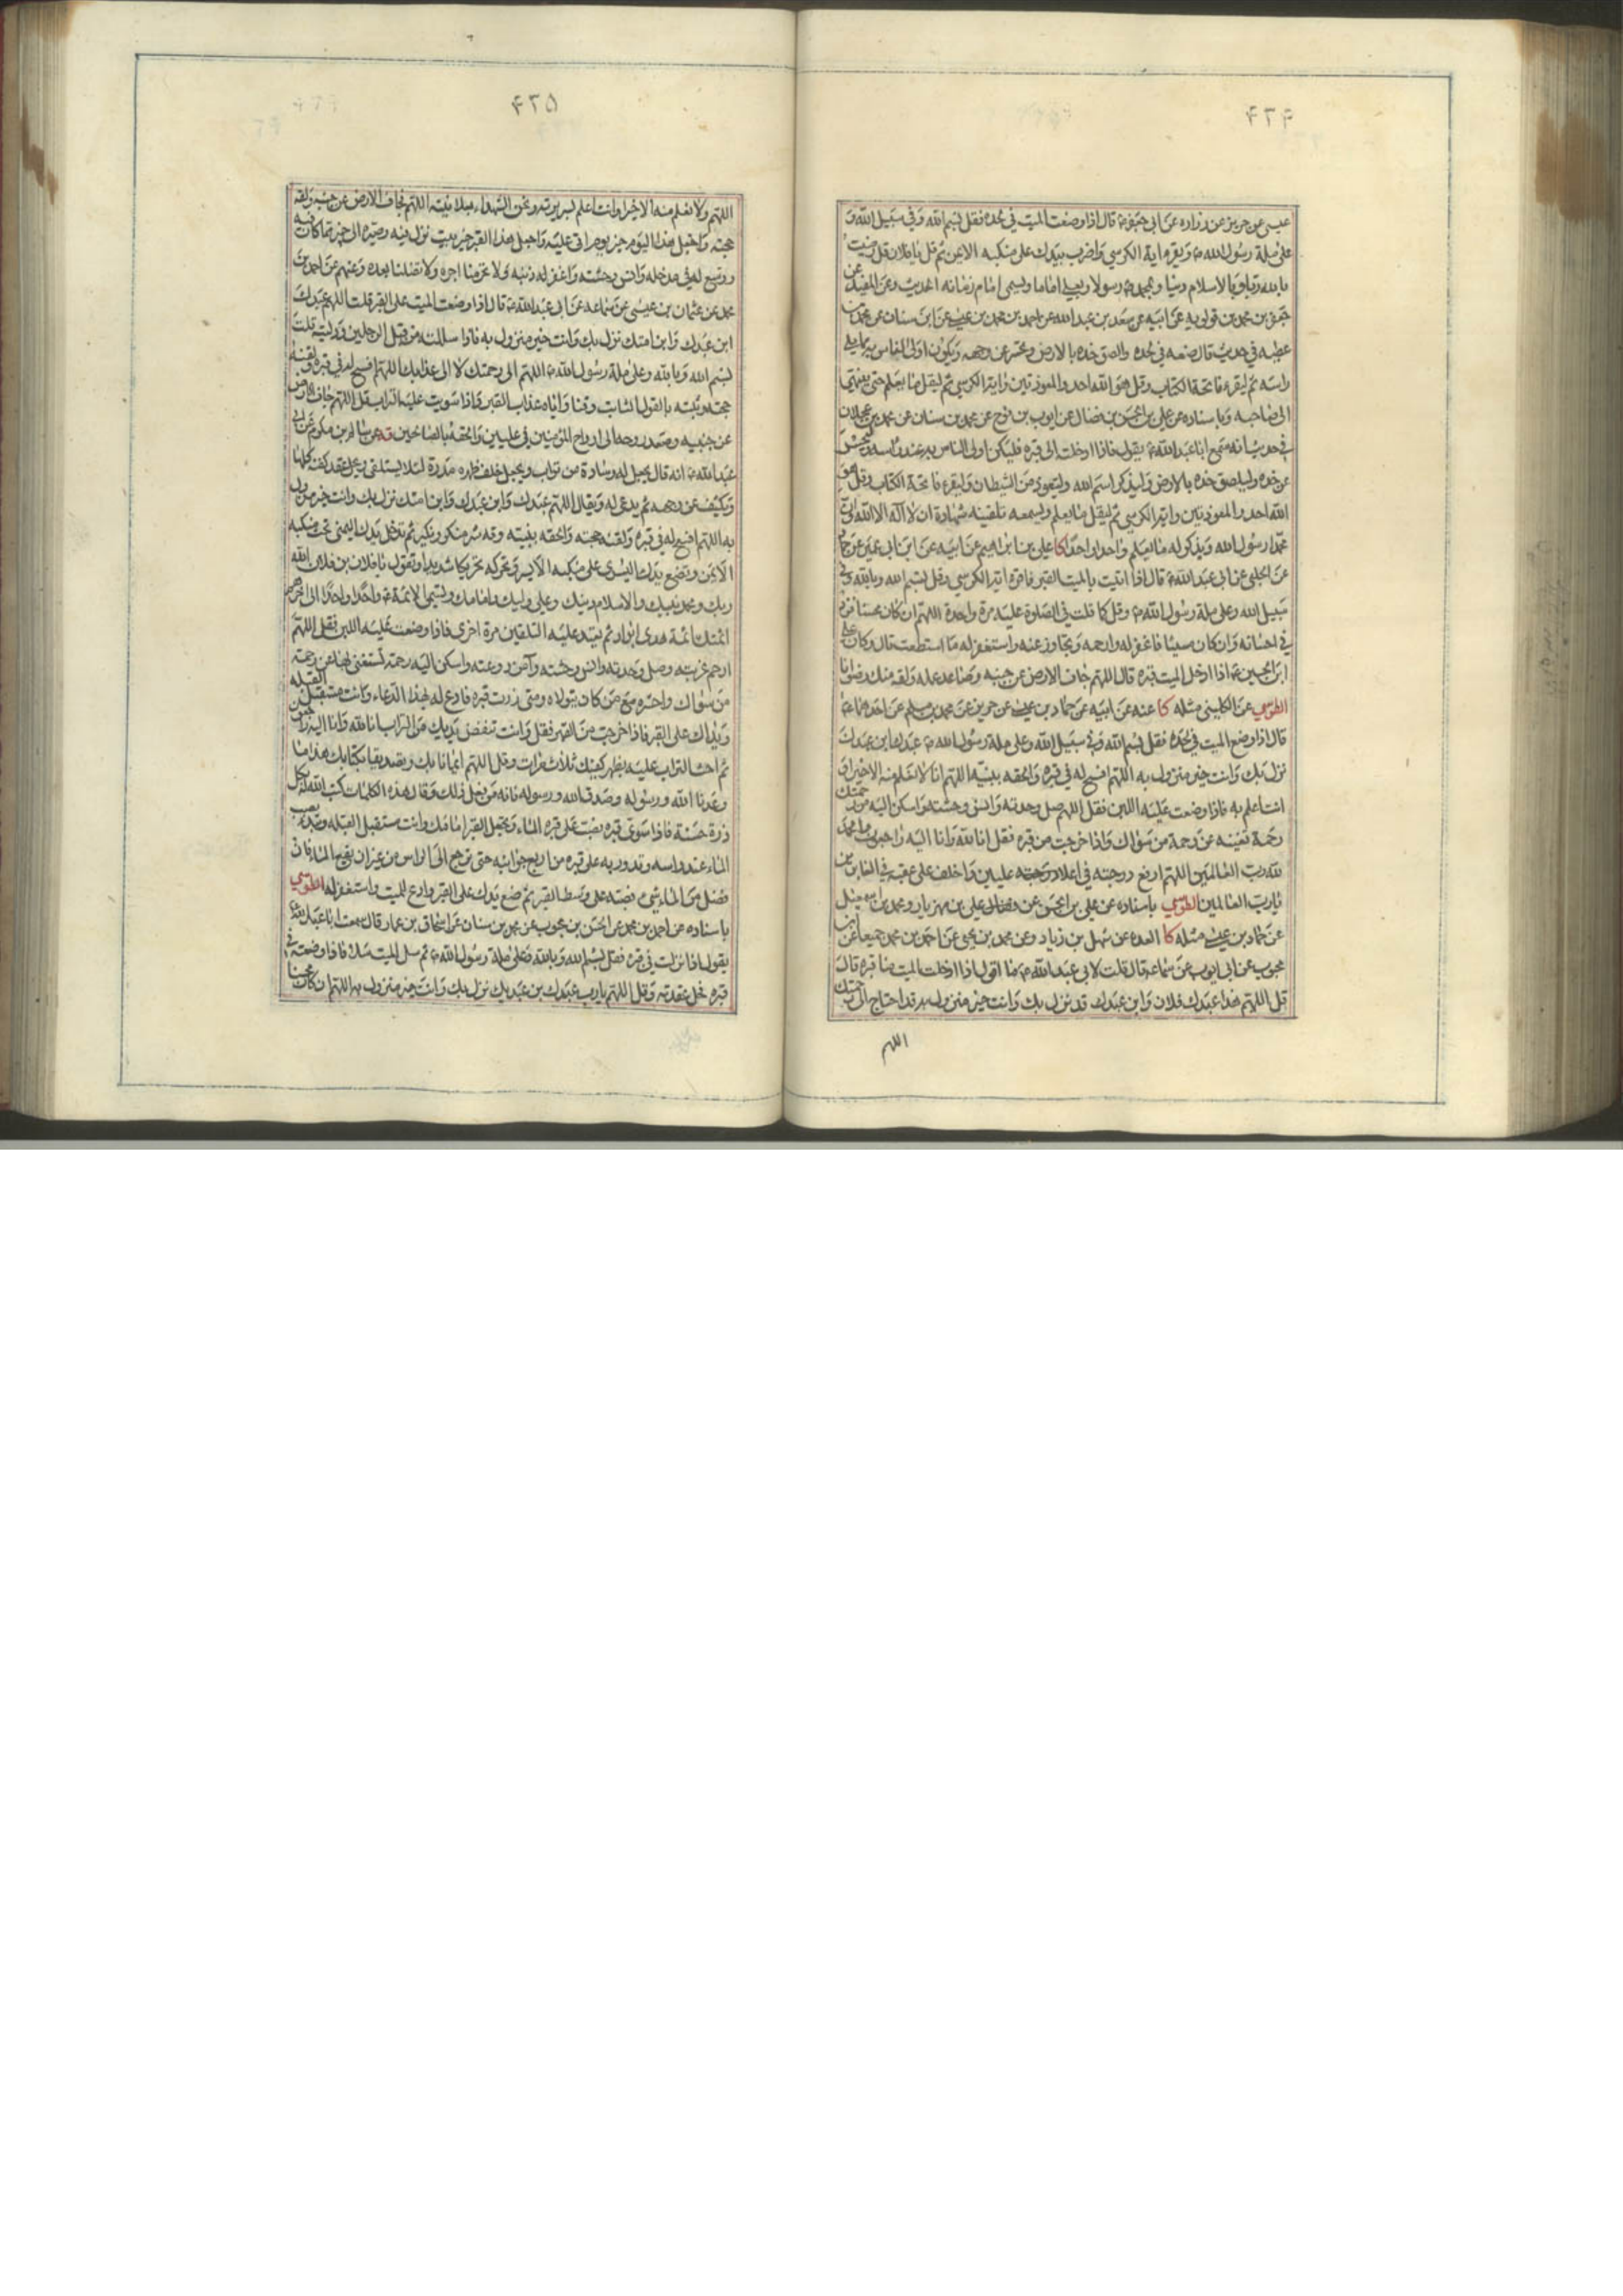 ۴۲۴
عيسى عن حريز عن زراره عن ابى جعفر ع قال اذا وضعت الميت فى لحده فقل بسم الله وفى سبيل الله و
على ملة رسول الله ص ويقرء اية الكرسي واضرب بيدك على منكبه الايمن ثم قل يا فلان قل رضيت
بالله ربا وبالاسلام دينا وبمحمد ص رسولا وبعلى اماما ويسمى امام زمانه الحديث وعن المفيد عن
جعفر بن محمد بن قولويه عن ابيه عن سعد بن عبد الله عن احمد بن محمد بن عيسى عن ابن سنان عن محمد بن
عطيه فى حديث قال ضعه فى لحده والصق خده بالارض وتحسر عن وجهه ويكون اولى الناس به مما يلى
راسه ثم ليقرء فاتحة الكتاب وقل هو الله احد والمعوذتين واية الكرسي ثم ليقل ما يعلم حتى ينتهى
الى صاحبه وباسناده عن على بن الحسن بن فضال عن ايوب بن نوح عن محمد بن سنان عن محمد بن عجلان
فى حديث انه سمع ابا عبد الله ع يقول فاذا ادخلت الى قبره فليكن اولى الناس به عند راسه وليحسر
عن خده وليلصق خده بالارض وليذكر اسم الله وليتعوذ من الشيطان وليقرء فاتحة الكتاب وقل هو
الله احد والمعوذتين واية الكرسي ثم ليقل ما يعلم ويسمعه تلقينه شهادة ان لا اله الا الله وان
محمدا رسول الله ويذكر له ما يعلم واحدا واحدا كا على بن ابراهيم عن ابيه عن ابن ابى عمير عن حماد
عن الحلبى عن ابى عبد الله ع قال اذا اتيت بالميت القبر فاقرء اية الكرسي وقل بسم الله وبالله وفى
سبيل الله وعلى ملة رسول الله ص وقل كما قلت فى الصلوة عليه مرة واحدة اللهم ان كان محسنا فزد
فى احسانه وان كان مسيئا فاغفر له وارحمه وتجاوز عنه واستغفر له ما استطعت قال وكان على
ابن الحسين ع اذا ادخل الميت قبره قال اللهم جاف الارض عن جنبيه وصاعد عمله ولقه منك رضوانا
الطوسي عن الكلينى مثله كا عنه عن ابيه عن حماد بن عيسى عن حريز عن محمد بن مسلم عن احدهما ع
قال اذا وضع الميت فى لحده فقل بسم الله وفى سبيل الله وعلى ملة رسول الله ص عبدك ابن عبدك
نزل بك وانت خير منزول به اللهم افسح له فى قبره والحقه بنبيه اللهم انا لا نعلم منه الا خيرا و
انت اعلم به فاذا وضعت عليه اللبن فقل اللهم صل وحدته وانس وحشته واسكن اليه من رحمتك
رحمة تغنيه عن رحمة من سواك واذا خرجت من قبره فقل انا لله وانا اليه راجعون والحمد
لله رب العالمين اللهم ارفع درجته فى اعلا عليين واخلف على عقبه فى الغابرين
يا رب العالمين الطوسي باسناده عن على بن الحسن عن على بن مهزيار ومحمد بن اسمعيل
عن حماد بن عيسى مثله كا العده عن سهل بن زياد وعن محمد بن يحيى عن احمد بن محمد جميعا عن ابن
محبوب عن ابى ايوب عن سماعه قال قلت لابى عبد الله ع ما اقول اذا ادخلت الميت منا قبره قال
قل اللهم هذا عبدك فلان وابن عبدك قد نزل بك وانت خير منزول به قد احتاج الى رحمتك
اللهم
۴۲۵
اللهم ولا نعلم منه الا خيرا وانت اعلم بسريرته ونحن الشهداء بعلانيته اللهم فجاف الارض عن جنبيه ولقنه
حجته واجعل هذا اليوم خير يوم اتى عليه واجعل هذا القبر خير بيت نزل فيه وصيره الى خير مما كان فيه
ووسع له فى مدخله وانس وحشته واغفر له ذنبه ولا تحرمنا اجره ولا تضلنا بعده وعنهم عن احمد بن
محمد عن عثمان بن عيسى عن سماعه عن ابى عبد الله ع قال اذا وضعت الميت على القبر قلت اللهم عبدك
ابن عبدك وابن امتك نزل بك وانت خير منزول به فاذا سللته من قبل الرجلين ودليته قلت
بسم الله وبالله وعلى ملة رسول الله ص اللهم الى رحمتك لا الى عذابك اللهم افسح له فى قبره ولقنه
حجته وثبته بالقول الثابت وقنا واياه عذاب القبر واذا سويت عليه التراب قل اللهم جاف الارض
عن جنبيه وصعد روحه الى ارواح المؤمنين فى عليين والحقه بالصالحين قه عن سالم بن مكرم عن ابى
عبد الله ع انه قال يجعل له وسادة من تراب ويجعل خلف ظهره مدرة لئلا يستلقى ويحل عقد كفنه كلها
ويكشف عن وجهه ثم يدعى له ويقال اللهم عبدك وابن عبدك وابن امتك نزل بك وانت خير منزول
به اللهم افسح له فى قبره ولقنه حجته والحقه بنبيه وقه شر منكر ونكير ثم تدخل يدك اليمنى تحت منكبه
الايمن وتضع يدك اليسرى على منكبه الايسر وتحركه تحريكا شديدا وتقول يا فلان بن فلان الله
ربك ومحمد نبيك والاسلام دينك وعلى وليك وامامك وتسمى الائمة ع واحدا واحدا الى اخرهم
ائمتك ائمة هدى ابرار ثم تعيد عليه التلقين مرة اخرى فاذا وضعت عليه اللبن فقل اللهم
ارحم غربته وصل وحدته وانس وحشته وآمن روعته واسكن اليه رحمة يستغنى بها عن رحمة
من سواك واحشره مع من كان يتولاه ومتى زرت قبره فادع له بهذا الدعاء وانت مستقبل القبلة
ويداك على القبر فاذا خرجت من القبر فقل وانت تنفض يديك من التراب انا لله وانا اليه راجعون
ثم احث التراب عليه بظهر كفيك ثلاث مرات وقل اللهم ايمانا بك وتصديقا بكتابك هذا ما
وعدنا الله ورسوله وصدق الله ورسوله فانه من فعل ذلك وقال هذه الكلمات كتب الله له بكل
ذرة حسنة فاذا سوى قبره تصب على قبره الماء وتجعل القبر امامك وانت مستقبل القبلة وتبدء بصب
الماء عند راسه وتدور به على قبره من اربع جوانبه حتى ترجع الى الراس من غير ان تقطع الماء فان
فضل من الماء شيء فصبه على وسط القبر ثم ضع يدك على القبر وادع للميت واستغفر له الطوسي
باسناده عن احمد بن محمد عن الحسن بن محبوب عن محمد بن سنان عن اسحاق بن عمار قال سمعت ابا عبد الله ع
يقول اذا نزلت فى قبره فقل بسم الله وبالله وعلى ملة رسول الله ص ثم سل الميت سلا فاذا وضعته فى
قبره فحل عقدته وقل اللهم يا رب عبدك بن عبدك نزل بك وانت خير منزول به اللهم ان كان محسنا